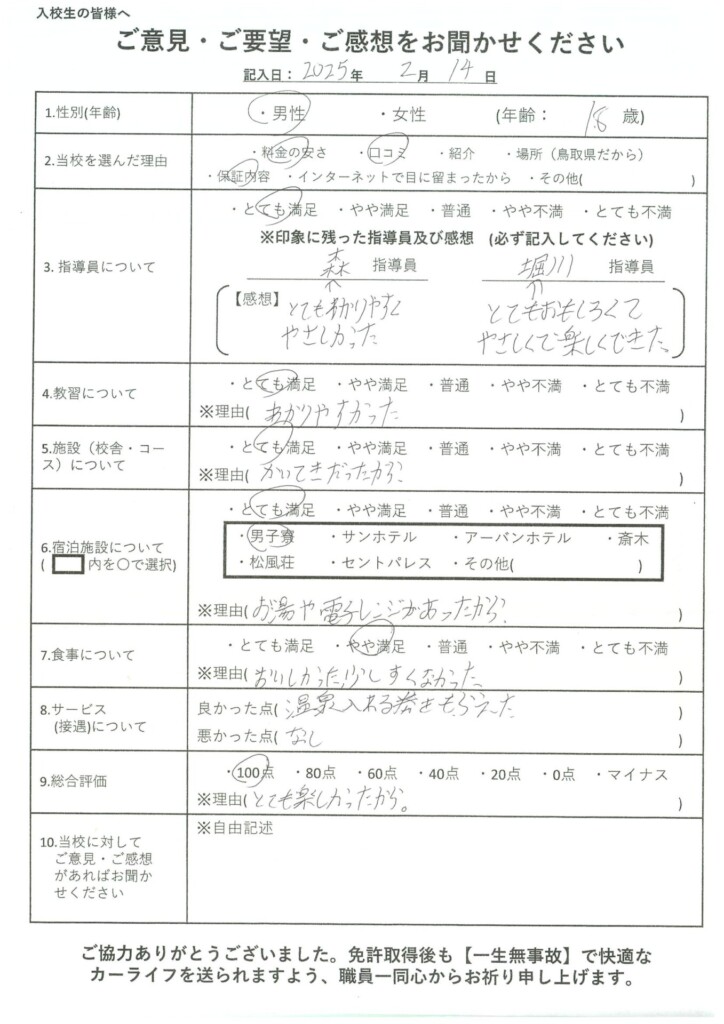 入校生の皆様へ
ご意見・ご要望・ご感想をお聞かせください
記入日：2025年 2月 14日
1.性別(年齢) ・男性 ・女性 (年齢： 18 歳)
2.当校を選んだ理由 ・料金の安さ ・口コミ ・紹介 ・場所（鳥取県だから）
・保証内容 ・インターネットで目に留まったから ・その他( )
3. 指導員について ・とても満足 ・やや満足 ・普通 ・やや不満 ・とても不満
※印象に残った指導員及び感想 (必ず記入してください)
森 指導員 堀川 指導員
【感想】とてもわかりやすく とてもおもしろくて
やさしかった やさしくて楽しくできた。
4.教習について ・とても満足 ・やや満足 ・普通 ・やや不満 ・とても不満
※理由( わかりやすかった )
5.施設（校舎・コース）について ・とても満足 ・やや満足 ・普通 ・やや不満 ・とても不満
※理由( かいてきだったから。 )
6.宿泊施設について ・とても満足 ・やや満足 ・普通 ・やや不満 ・とても不満
( 内を○で選択) ・男子寮 ・サンホテル ・アーバンホテル ・斎木
・松風荘 ・セントパレス ・その他( )
※理由( お湯や電子レンジがあったから。 )
7.食事について ・とても満足 ・やや満足 ・普通 ・やや不満 ・とても不満
※理由( おいしかった少しすくなかった。 )
8.サービス 良かった点( 温泉入れる券をもらえた )
(接遇)について 悪かった点( なし )
9.総合評価 ・100点 ・80点 ・60点 ・40点 ・20点 ・0点 ・マイナス
※理由( とても楽しかったから。 )
10.当校に対して ※自由記述
ご意見・ご感想
があればお聞か
せください
ご協力ありがとうございました。免許取得後も【一生無事故】で快適な
カーライフを送られますよう、職員一同心からお祈り申し上げます。